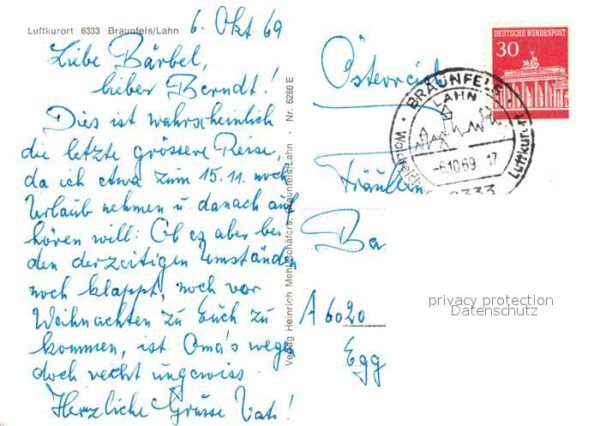 Luftkurort 6333 Braunfels/Lahn
6. Okt. 69
Liebe Bärbel,
lieber Berndt!
Dies ist wahrscheinlich
die letzte grössere Reise,
da ich etwa zum 15.11. noch
Urlaub nehmen u. danach auf
hören will. Ob es aber bei
den derzeitigen Umständen
noch klappt, noch vor
Weihnachten zu Euch zu
kommen, ist Oma's wegen
doch recht ungewiss.
Herzliche Grüsse Vati!
Verlag Heinrich Braunfels/Lahn - Nr. 6280 E
DEUTSCHE BUNDESPOST
30
BRAUNFELS
LAHN
-6.10.69 17
6333
Luftkurort
Österreich
Fräulein
Ba
A 6020
Egg
privacy protection
Datenschutz